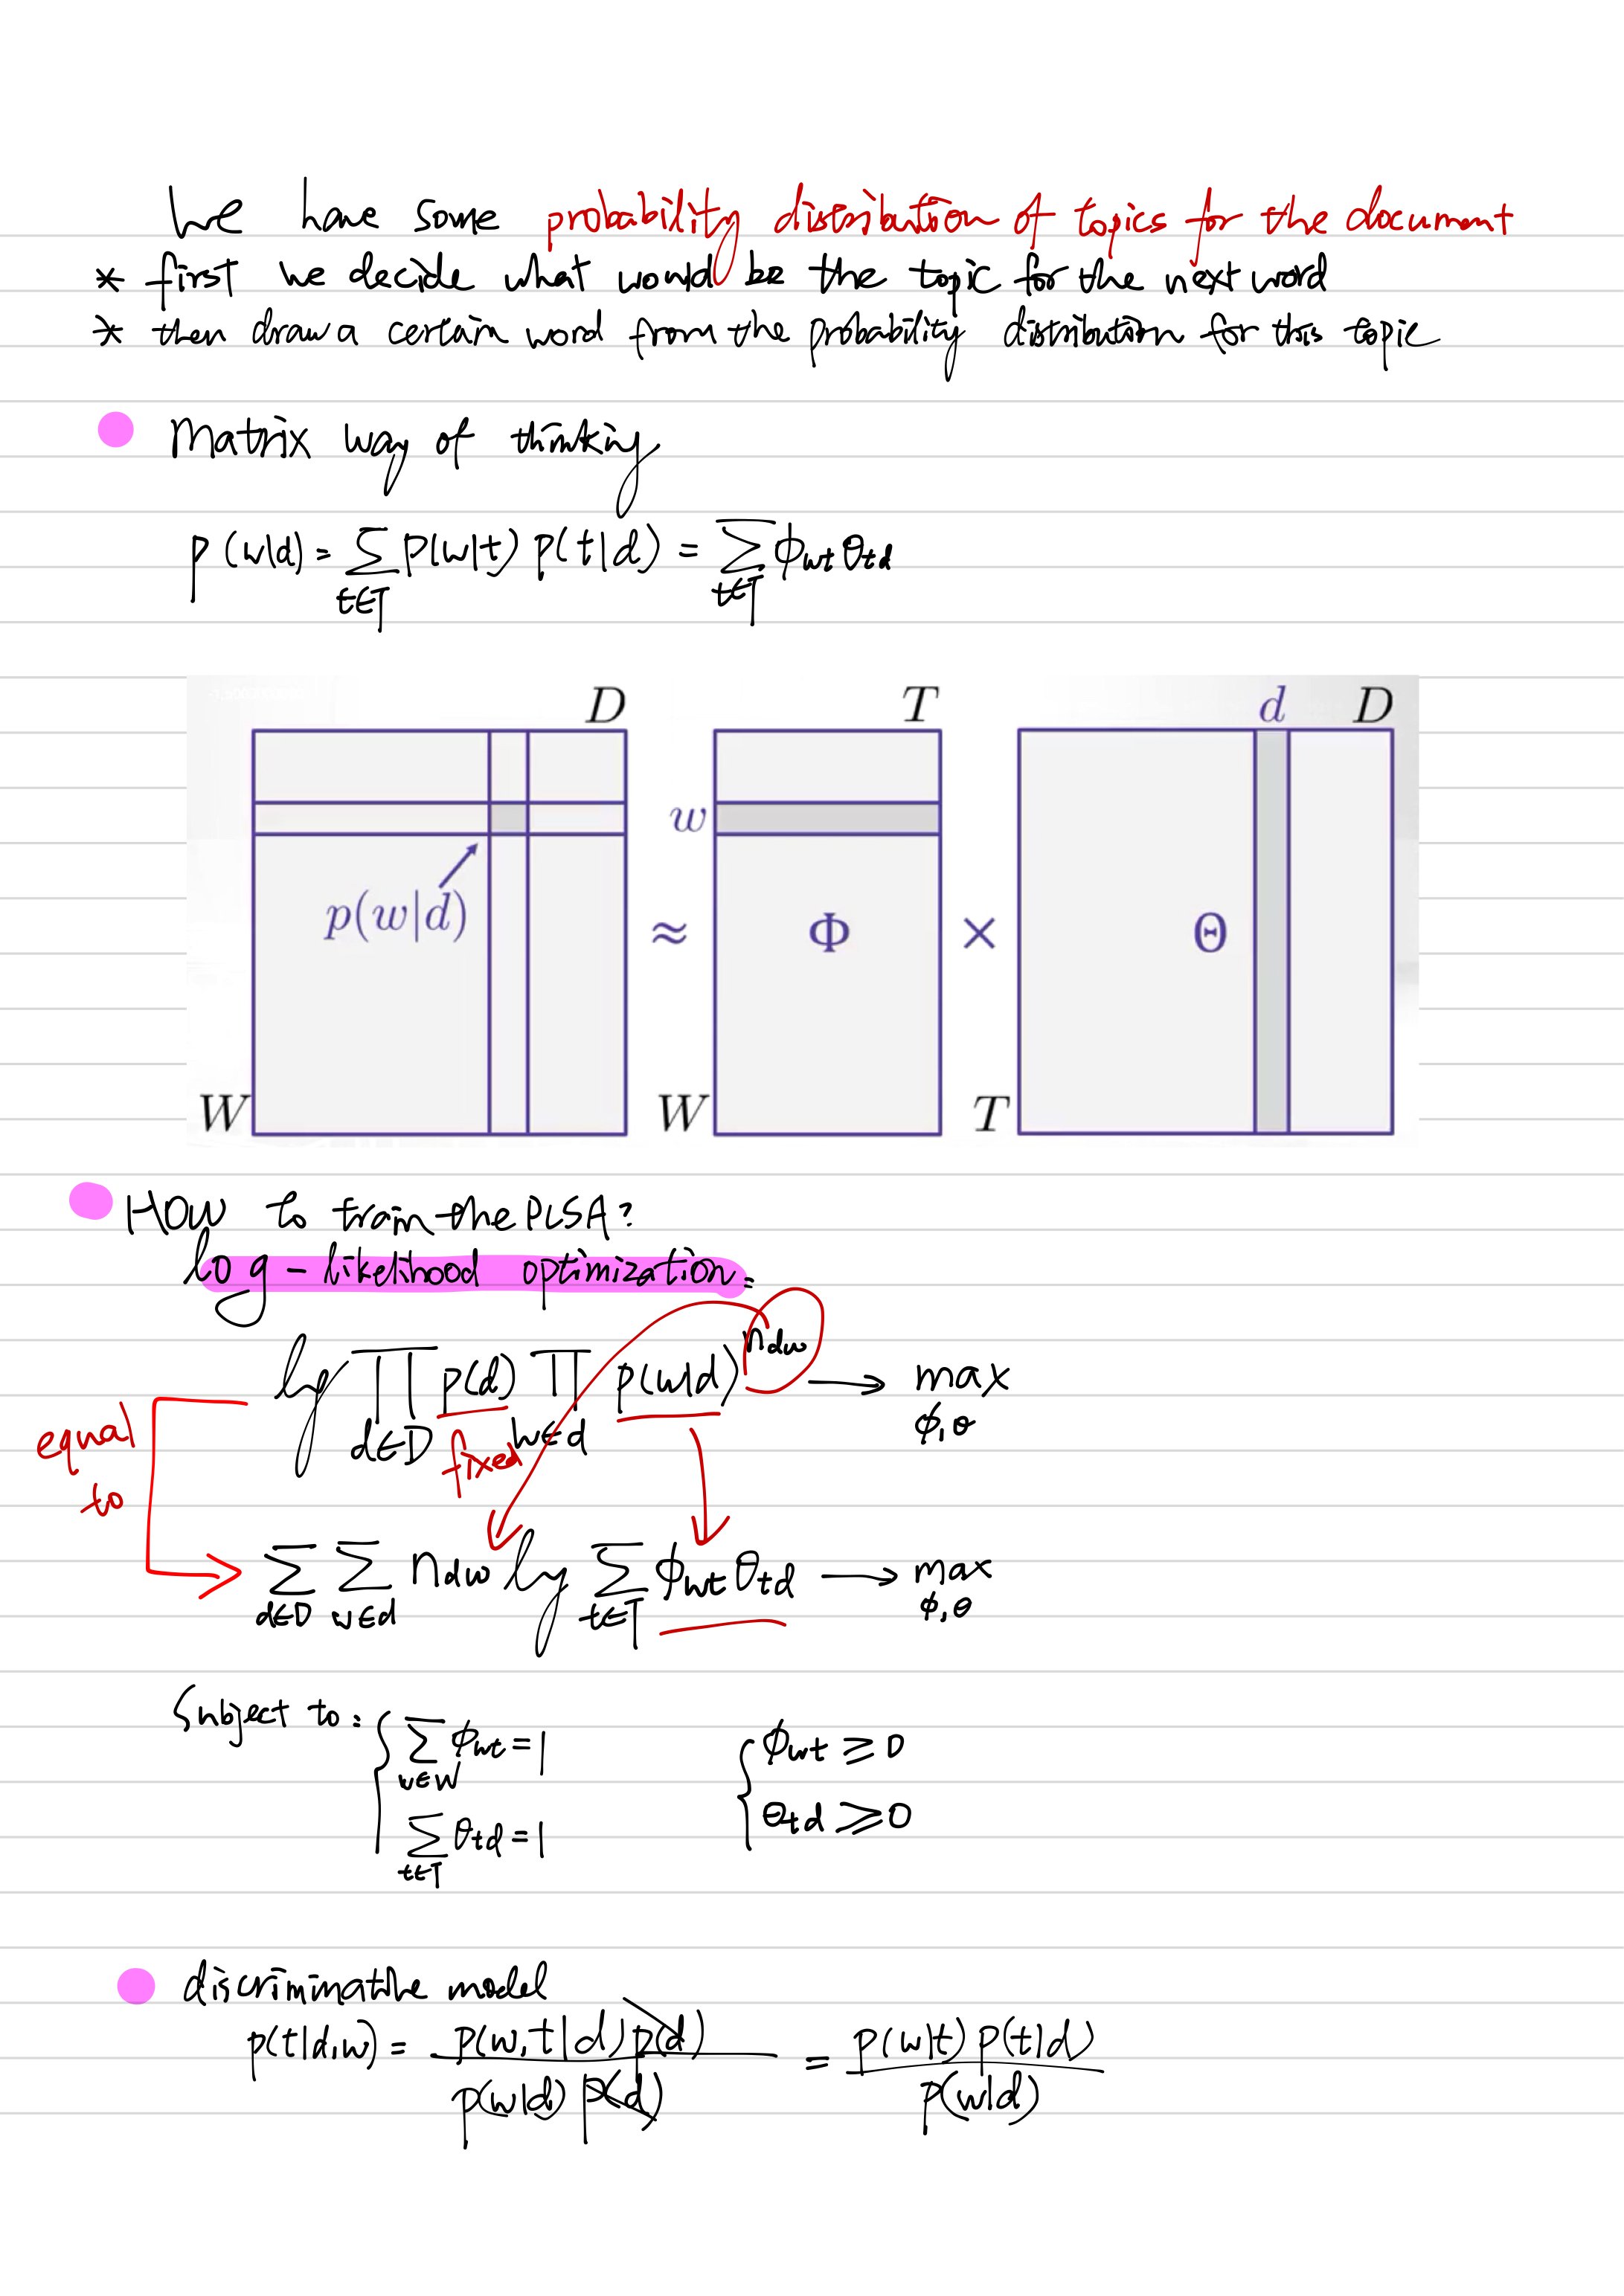 We have some probability distribution of topics for the document
* first we decide what would be the topic for the next word
* then draw a certain word from the probability distribution for this topic
Matrix way of thinking
p(w|d) = ∑_{t∈T} p(w|t) p(t|d) = ∑_{t∈T} ϕ_{wt} θ_{td}
D T d D
w
p(w|d) ≈ Φ × Θ
W W T
How to train the PLSA?
log-likelihood optimization:
log ∏_{d∈D} p(d) ∏_{w∈d} p(w|d)^{n_{dw}} → max_{ϕ,θ}
equal to
fixed
∑_{d∈D} ∑_{w∈d} n_{dw} log ∑_{t∈T} ϕ_{wt} θ_{td} → max_{ϕ,θ}
Subject to: { ∑_{w∈W} ϕ_{wt} = 1 { ϕ_{wt} ≥ 0
∑_{t∈T} θ_{td} = 1 θ_{td} ≥ 0
discriminative model
p(t|d,w) = p(w,t|d) p(d) / p(w|d) p(d) = p(w|t) p(t|d) / p(w|d)